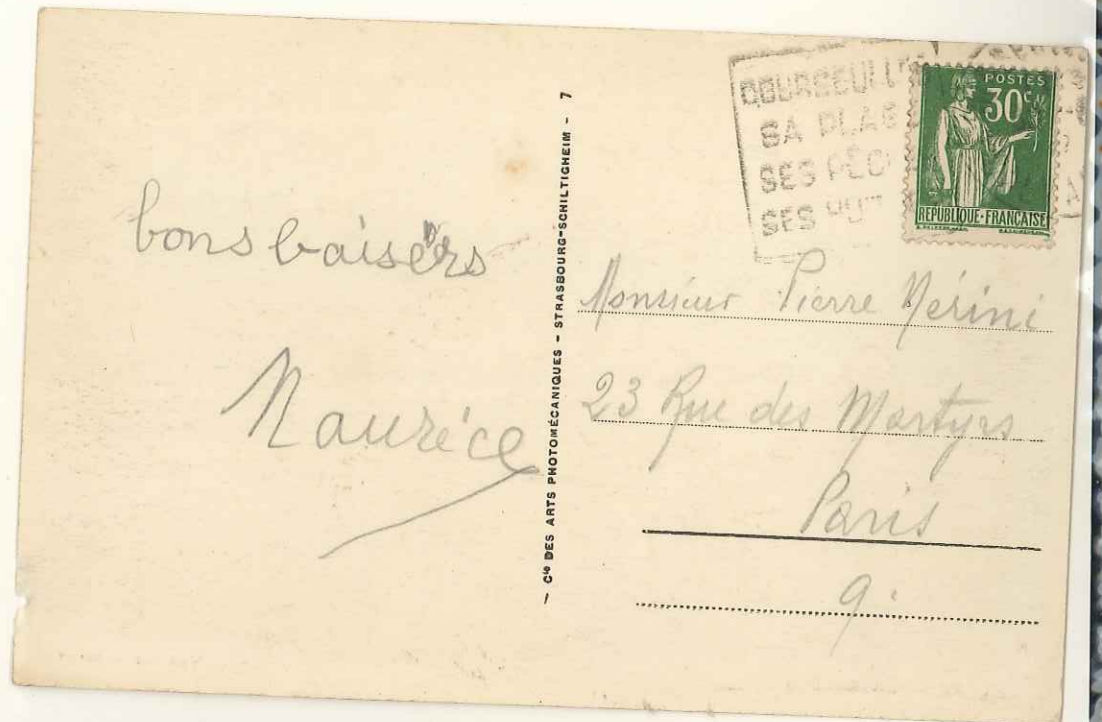 bons baisers
Maurice
- Cie DES ARTS PHOTOMÉCANIQUES - STRASBOURG-SCHILTIGHEIM - 7
SA PLAG
SES
SES
POSTES
30c
REPUBLIQUE-FRANCAISE
Monsieur Pierre Mérini
23 Rue des Martyrs
Paris
9.